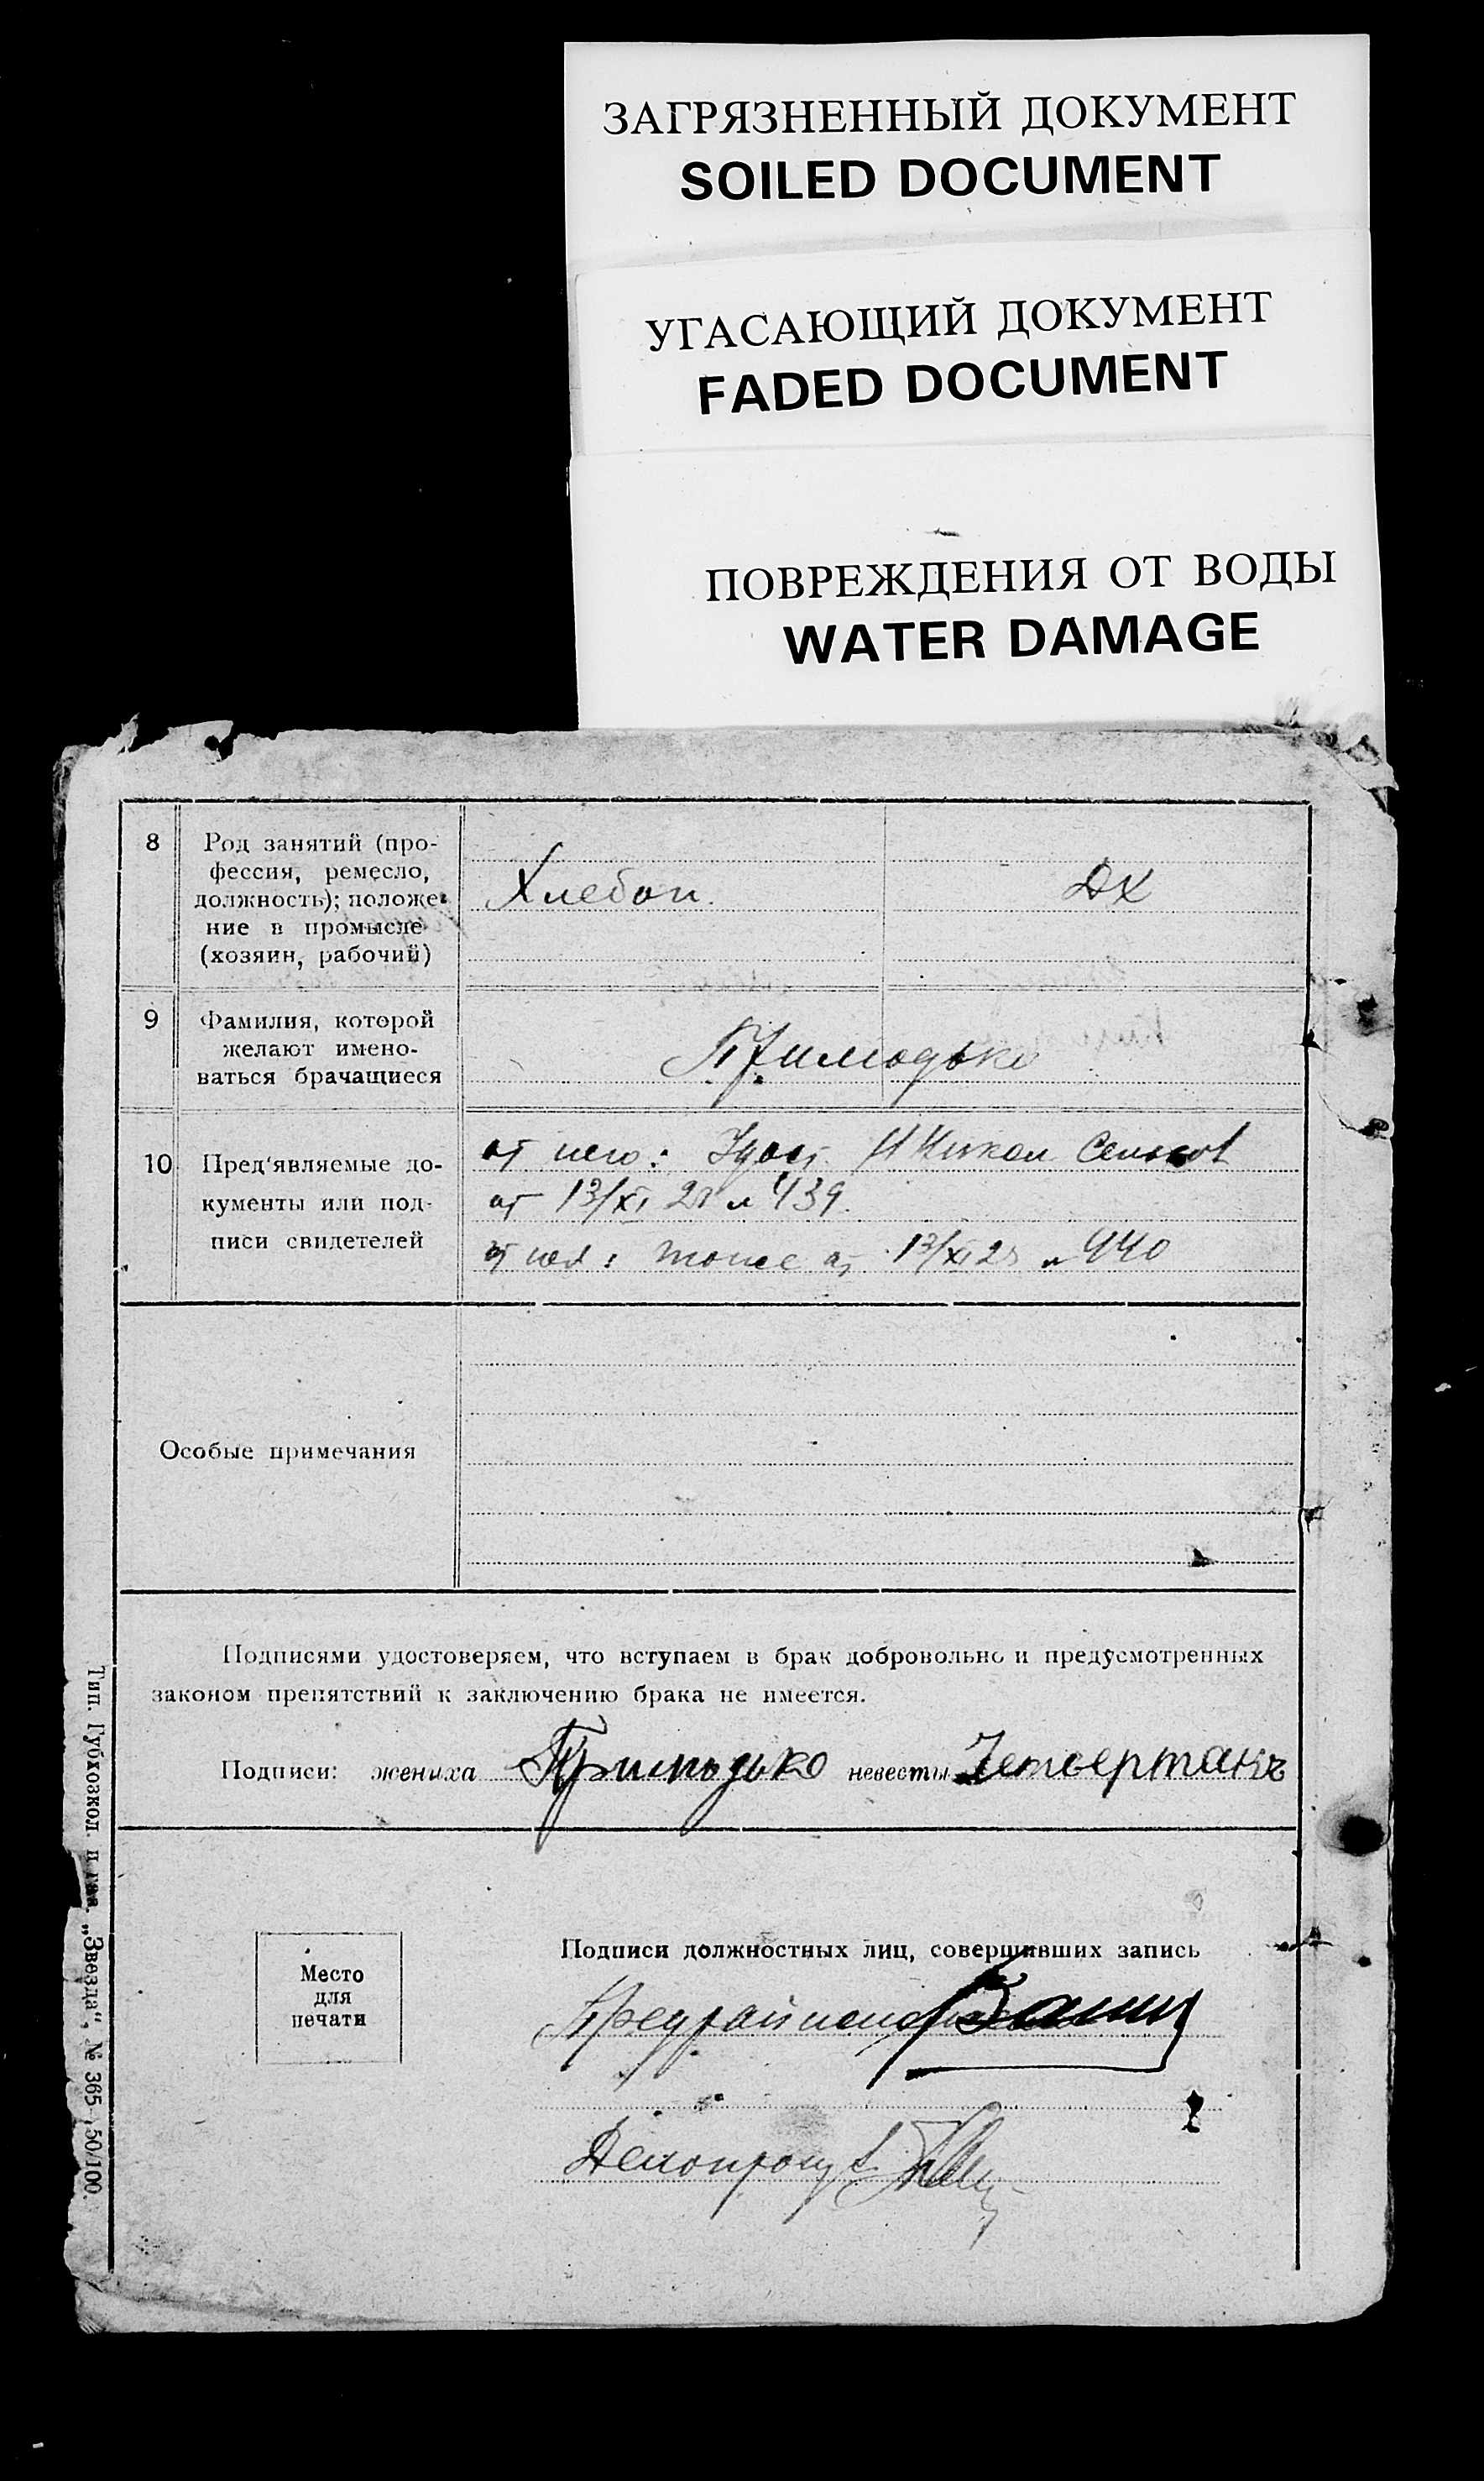 ЗАГРЯЗНЕННЫЙ ДОКУМЕНТ
SOILED DOCUMENT
УГАСАЮЩИЙ ДОКУМЕНТ
FADED DOCUMENT
ПОВРЕЖДЕНИЯ ОТ ВОДЫ
WATER DAMAGE
8 Род занятий (про-
фессия, ремесло,
должность); положе-
ние в промысле
(хозяин, рабочий)
Хлебоп.
ДХ
9 Фамилия, которой
желают имено-
ваться брачащиеся
Примодько
10 Пред'являемые до-
кументы или под-
писи свидетелей
от него: Удост. Н Никол
от 13/XI 28 № 439.
от нея: тоже от 13/XI 28 № 440
Особые примечания
Подписями удостоверяем, что вступаем в брак добровольно и предусмотренных
законом препятствий к заключению брака не имеется.
Подписи: жениха невесты Четвертакъ
Место
для
печати
Подписи должностных лиц, совершивших запись
Делопроизв
Тип. Губхозкол. п „Звезда“, № 365—50/100.